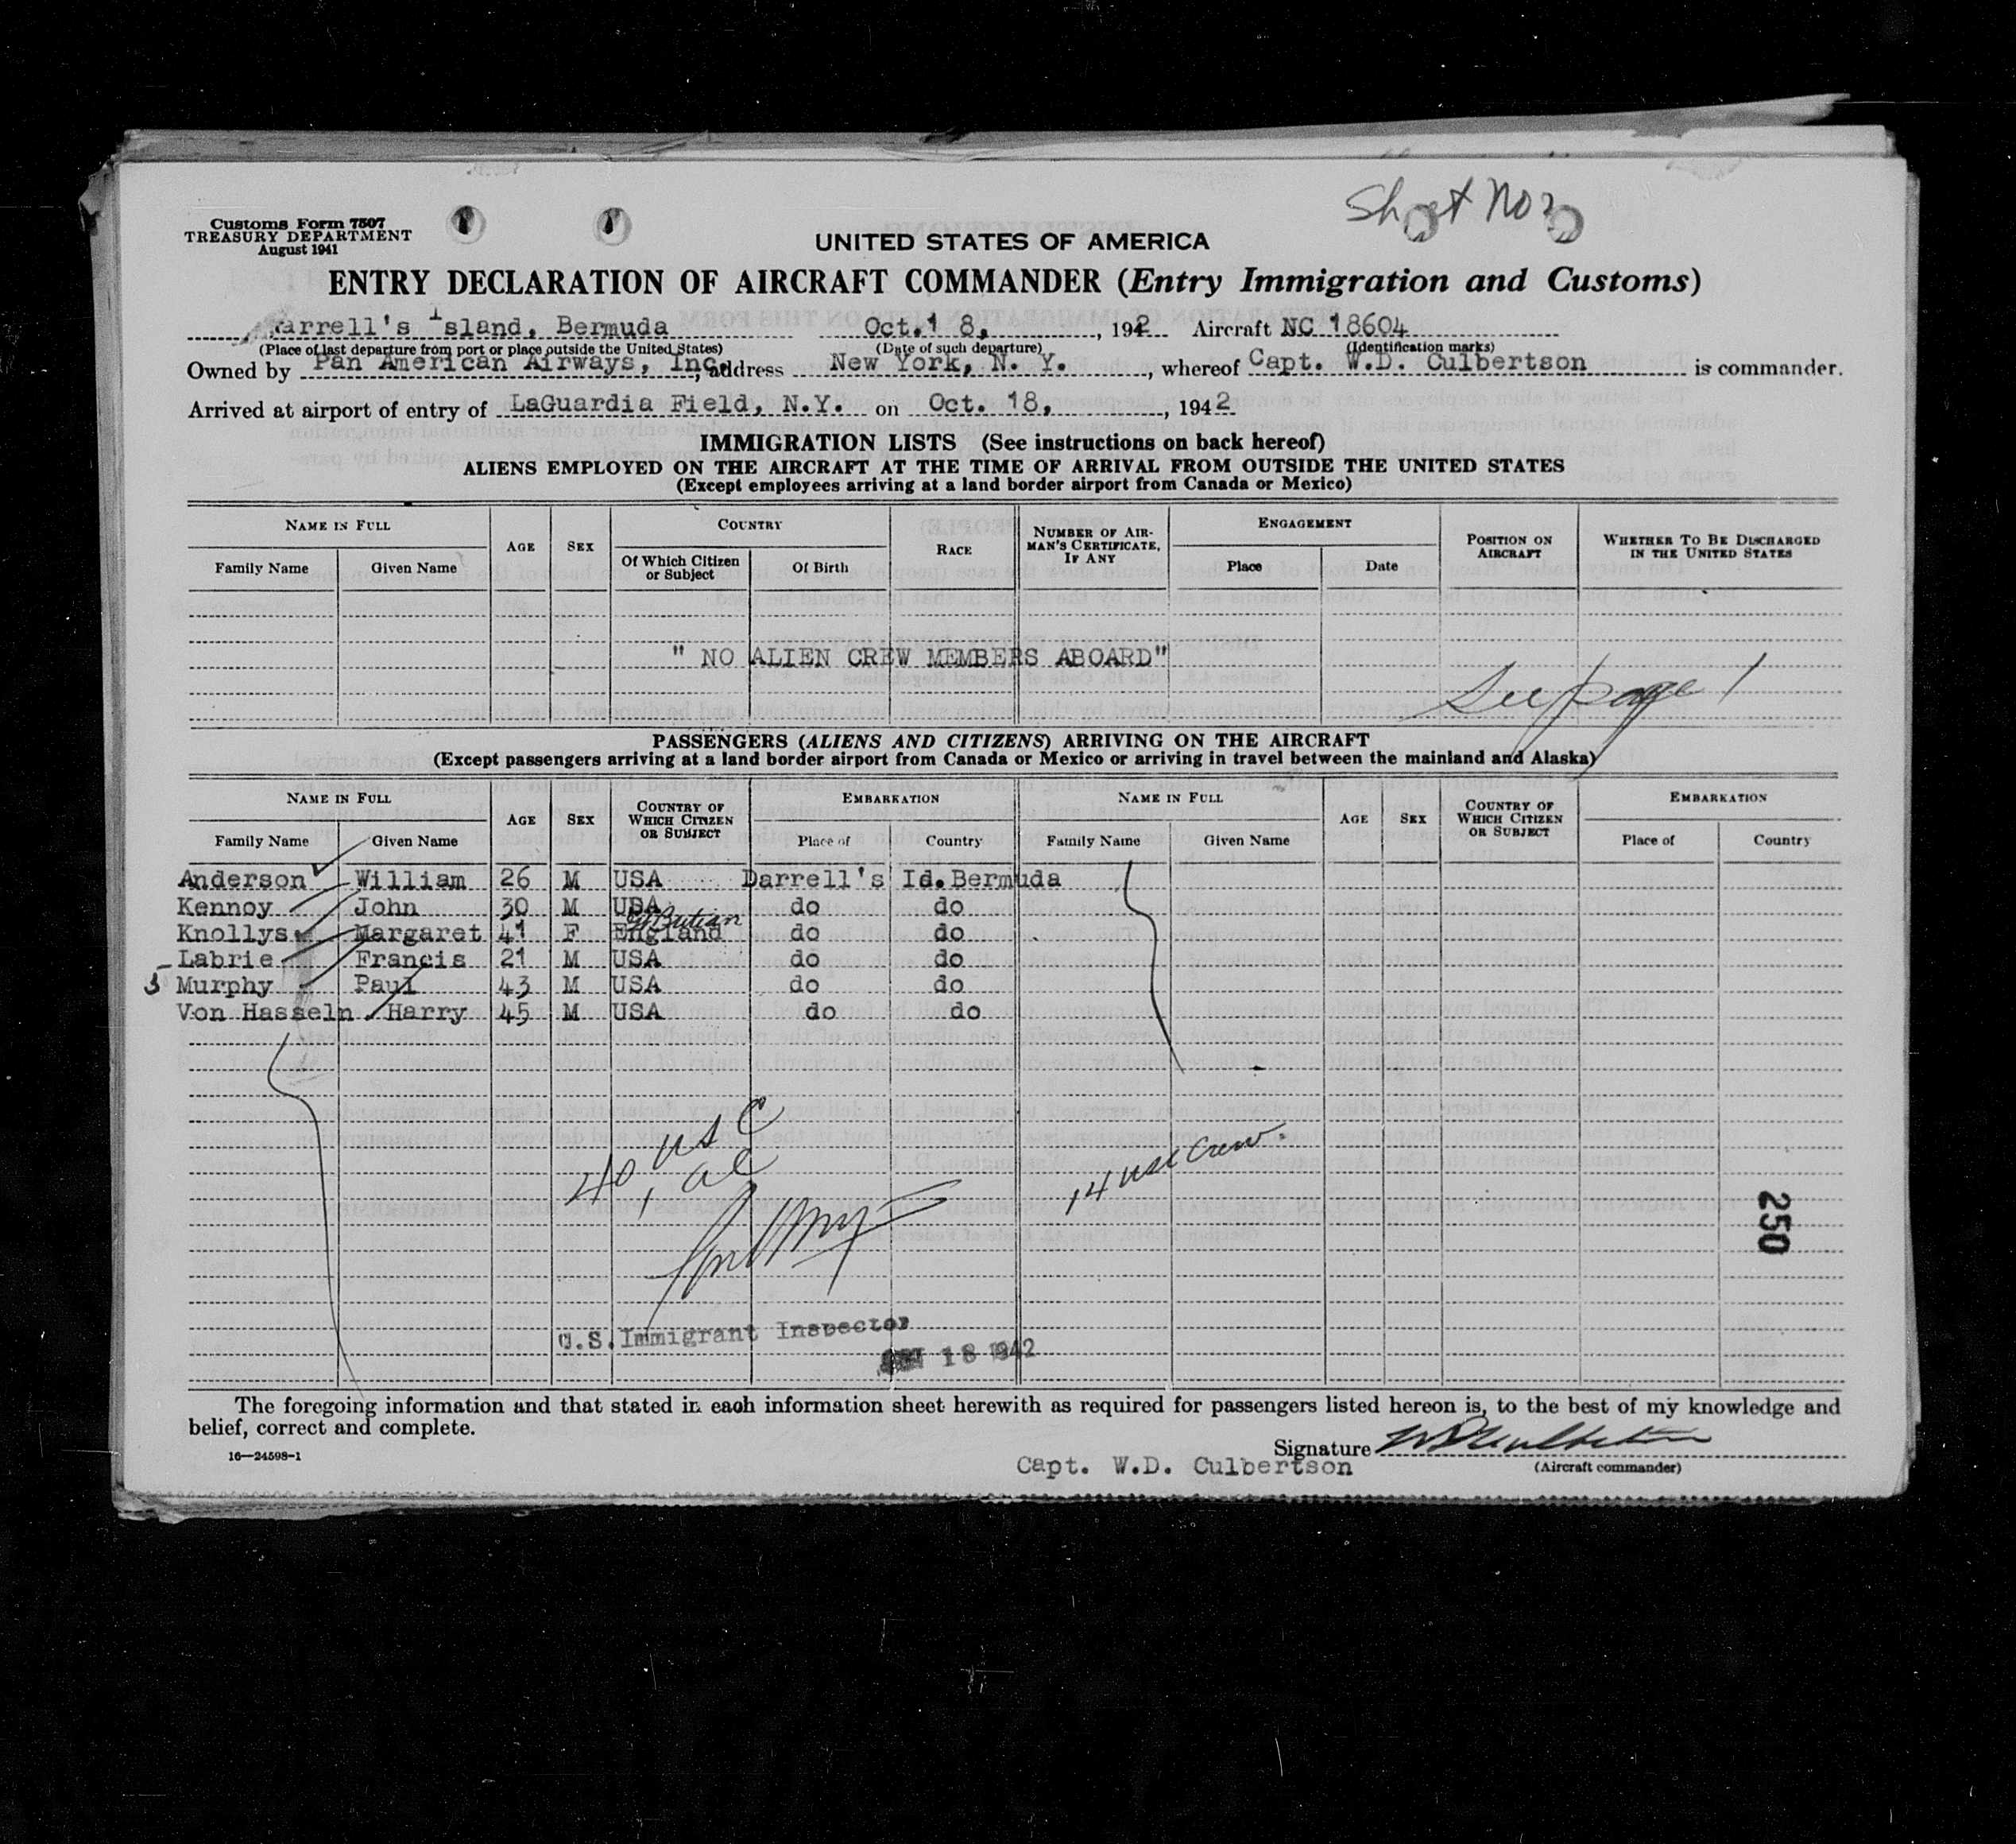 Sheet No 2
Customs Form 7507
TREASURY DEPARTMENT
August 1941
UNITED STATES OF AMERICA
ENTRY DECLARATION OF AIRCRAFT COMMANDER (Entry Immigration and Customs)
arrell's Island, Bermuda Oct.1 8, , 1942 Aircraft NC 18604
(Place of last departure from port or place outside the United States) (Date of such departure) (Identification marks)
Owned by Pan American Airways, Inc., address New York, N. Y. , whereof Capt. W.D. Culbertson is commander.
Arrived at airport of entry of LaGuardia Field, N.Y. on Oct. 18, , 1942
IMMIGRATION LISTS (See instructions on back hereof)
ALIENS EMPLOYED ON THE AIRCRAFT AT THE TIME OF ARRIVAL FROM OUTSIDE THE UNITED STATES
(Except employees arriving at a land border airport from Canada or Mexico)
NAME IN FULL AGE SEX COUNTRY RACE NUMBER OF AIR-MAN'S CERTIFICATE, IF ANY ENGAGEMENT POSITION ON AIRCRAFT WHETHER TO BE DISCHARGED IN THE UNITED STATES
Family Name Given Name Of Which Citizen or Subject Of Birth Place Date
" NO ALIEN CREW MEMBERS ABOARD"
See page 1
PASSENGERS (ALIENS AND CITIZENS) ARRIVING ON THE AIRCRAFT
(Except passengers arriving at a land border airport from Canada or Mexico or arriving in travel between the mainland and Alaska)
NAME IN FULL AGE SEX COUNTRY OF WHICH CITIZEN OR SUBJECT EMBARKATION NAME IN FULL AGE SEX COUNTRY OF WHICH CITIZEN OR SUBJECT EMBARKATION
Family Name Given Name Place of Country Family Name Given Name Place of Country
Anderson William 26 M USA Darrell's Id. Bermuda
Kennoy John 30 M USA do do
Knollys Margaret 41 F England do do
Labrie Francis 21 M USA do do
5 Murphy Paul 43 M USA do do
Von Hasseln Harry 45 M USA do do
40 USC
1 al
14 USC Crew.
250
U.S. Immigrant Inspector
18 1942
The foregoing information and that stated in each information sheet herewith as required for passengers listed hereon is, to the best of my knowledge and
belief, correct and complete.
16—24598-1
Signature WDCulbertson
Capt. W.D. Culbertson (Aircraft commander)